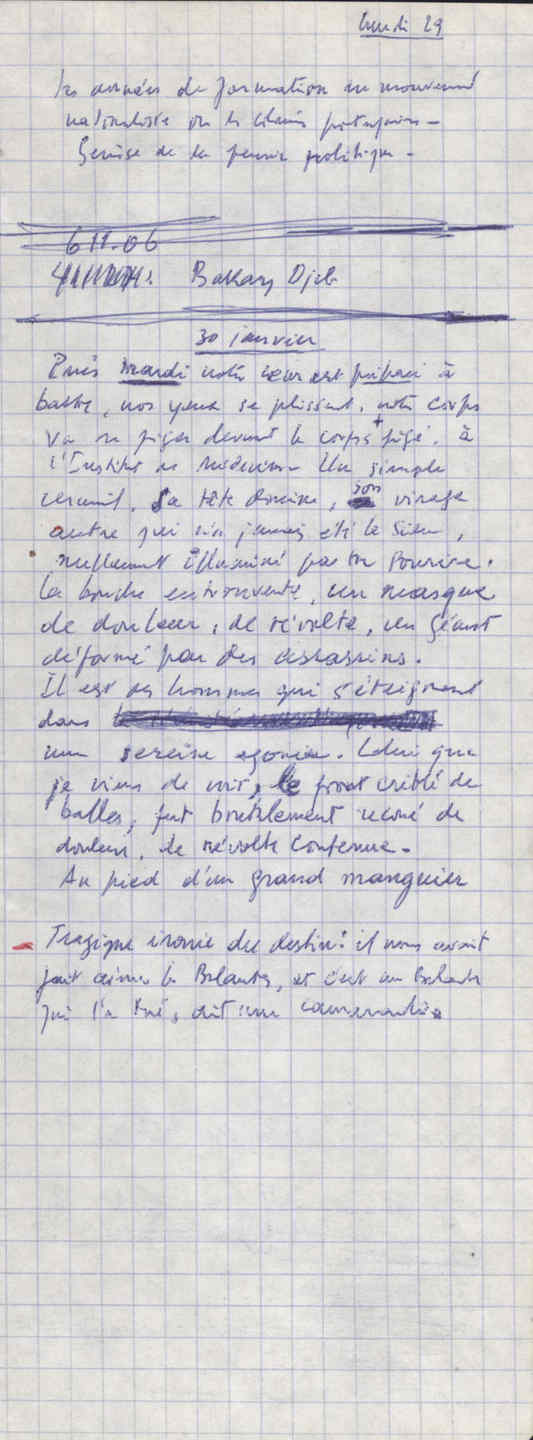 Lundi 29
Les années de formation du mouvement
nationaliste ds les colonies portugaises -
Genèse de la pensée politique -
611.06
Bakary Djib
30 janvier
mardi notre cœur est préparé à
battre, nos yeux se plissent, notre corps
va se figer devant le corps figé, à
l'Institut de Médecine. Un simple
cercueil. Sa tête droite, son visage
autre qui n'a jamais été le sien,
nullement illuminé par un sourire.
La bouche entrouverte, un masque
de douleur, de révolte, un géant
déformé par des assassins.
Il est des hommes qui s'éteignent
dans
une sereine agonie. Celui que
je viens de voir, le front criblé de
balles, fut brutalement secoué de
douleur, de révolte contenue.
Au pied d'un grand manguier
- Tragique ironie du destin : il nous avait
fait aimer les Balantes, et c'est un Balante
qui l'a tué, dit une camarade.